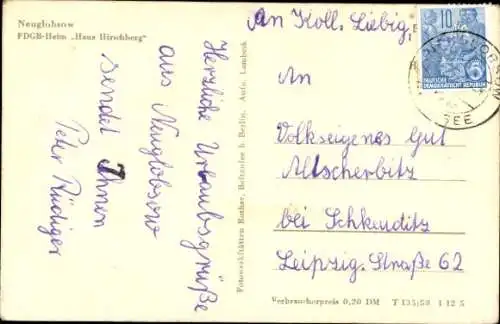 Neuglobsow
FDGB-Heim „Hans Hirschberg"
Herzliche Urlaubsgrüße
aus Neuglobsow
sendet Ihnen
Peter Rüdiger
Fotowerkstätten Rother, b. Berlin. Aufn. Lambeck
An Koll. Liebig,
An
Volkseigenes Gut
Altscherbitz
bei Schkeuditz
Leipzig. Straße 62
10
DEUTSCHE
DEMOKRATISCHE REPUBLIK
SEE
Verbraucherpreis 0,20 DM T 135/58 1 12 5